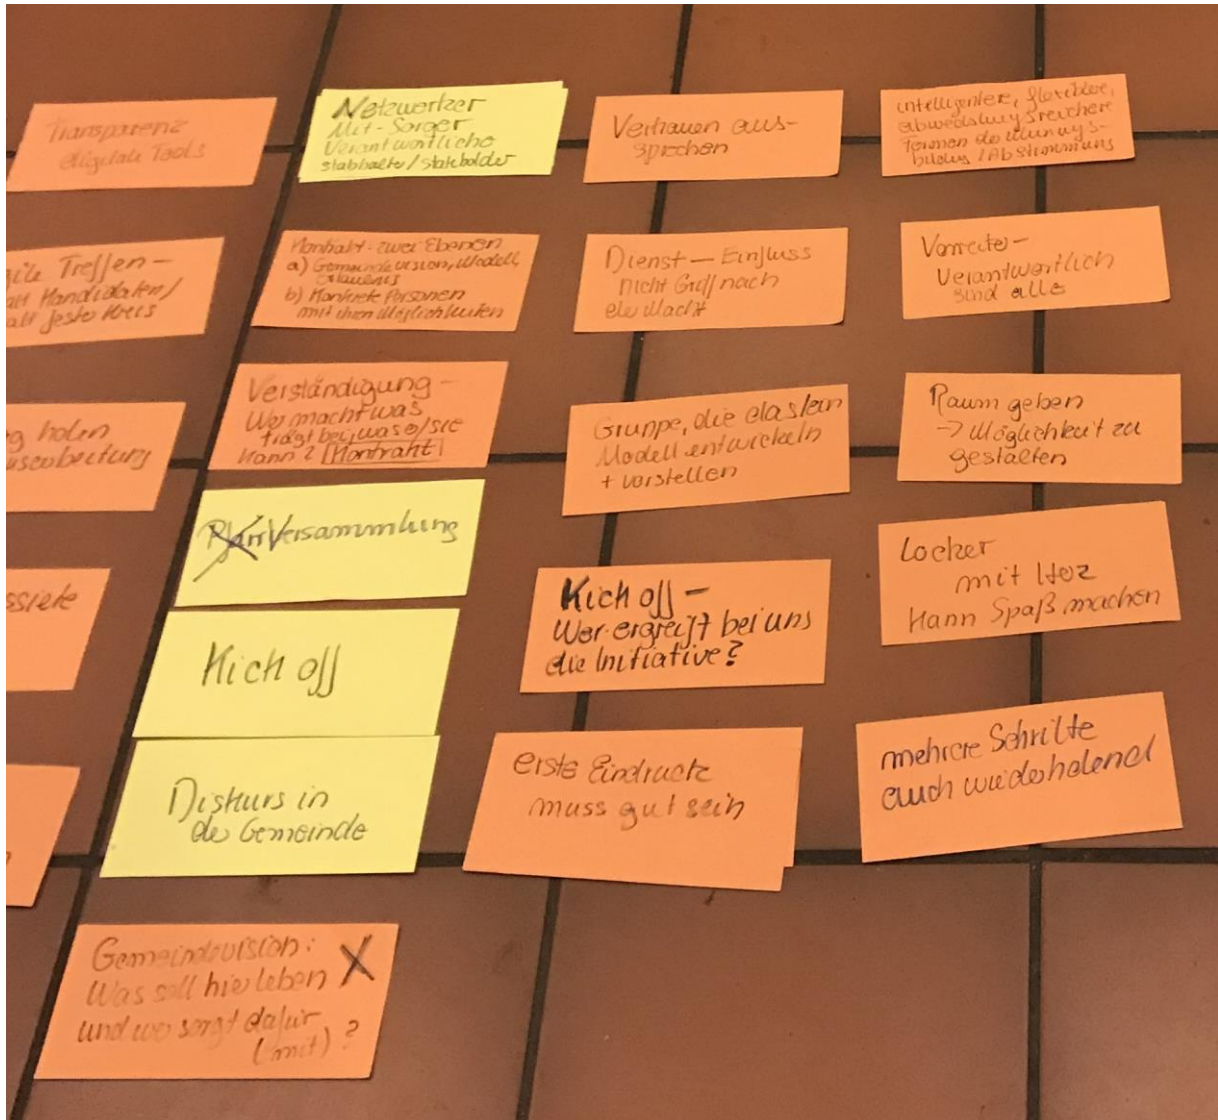 Transparenz
digitale Tools
Treffen –
Kandidaten/
fester Kreis
holen
Netzwerker
Mit-Sorger
Verantwortliche
Stabhalter/Stakeholder
Kontrakt - zwei Ebenen
a) Gemeindevision, Modell,
Erlaubnis
b) Konkrete Personen
mit ihren Möglichkeiten
Verständigung –
Wer macht was
trägt bei, was er/sie
kann? Kontrakt
PfarrVersammlung
Kick off
Diskurs in
der Gemeinde
Gemeindevision:
Was soll hier leben X
und wer sorgt dafür
(mit)?
Vertrauen aus-
sprechen
Dienst – Einfluss
nicht Griff nach
der Macht
Gruppe, die das/ein
Modell entwickeln
+ vorstellen
Kick off –
Wer ergreift bei uns
die Initiative?
erste Eindruck
muss gut sein
intelligentere, flexiblere,
abwechslungsreichere
Formen der Meinungs-
bildung / Abstimmung
Vorreiter –
Verantwortlich
sind alle
Raum geben
→ Möglichkeit zu
gestalten
Locker
mit Herz
Kann Spaß machen
mehrere Schritte
auch wiederholend